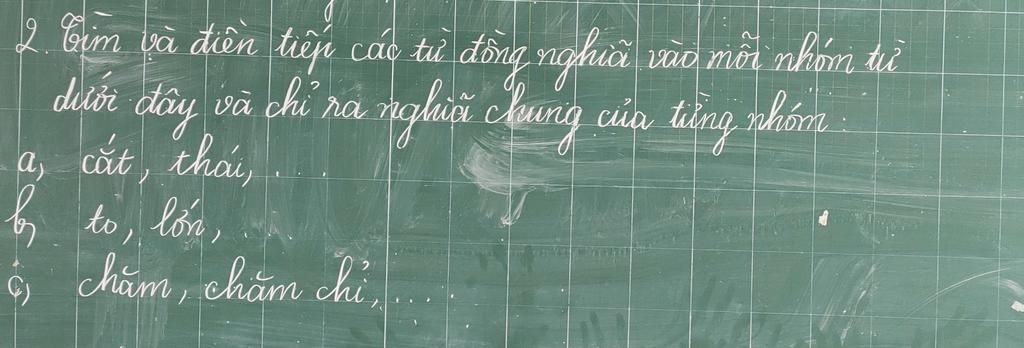 2. Tìm và điền tiếp các từ đồng nghĩa vào mỗi nhóm từ
dưới đây và chỉ ra nghĩa chung của từng nhóm:
a, cắt, thái, ....
b, to, lớn, ...
c, chăm, chăm chỉ, ....